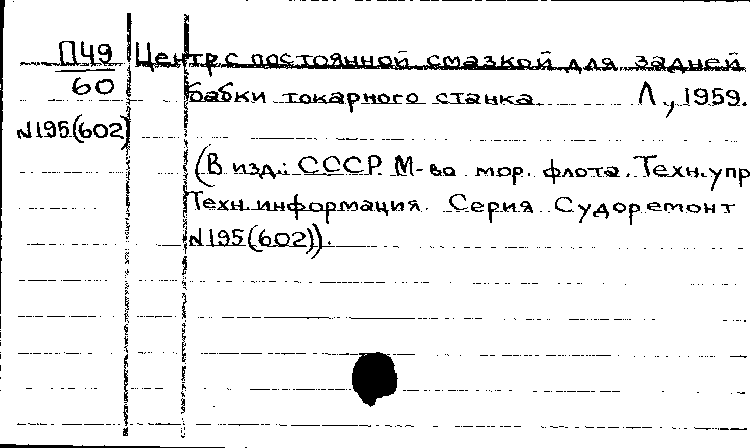 П49 Центр с постоянной смазкой для задней
60 бабки токарного станка. Л, 1959.
N195(602)
(В изд.: СССР. М-во мор. флота. Техн. упр
Техн. информация. Серия Судоремонт
N195(602)).